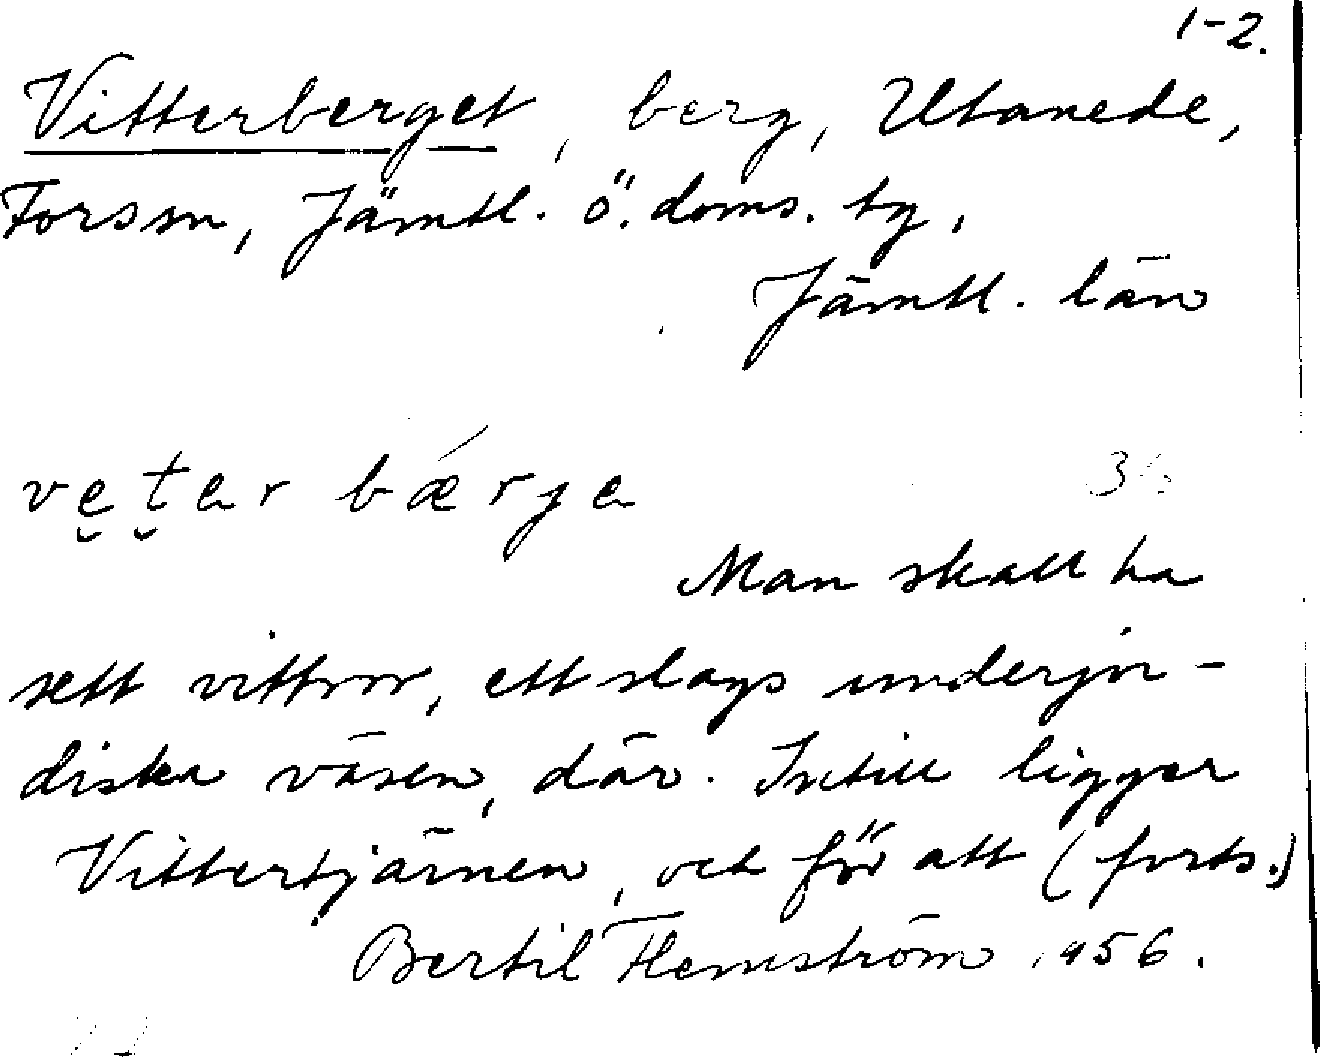 1-2.
Vitterberget, berg, Utanede,
Forsm, Jämtl. ö. doms. tg,
Jämtl. län
vetar bǽrja
Man skall ha
sett vittror, ett slags underjor-
diska väsen, där. Intill ligger
Vittertjärnen, och för att (forts.)
Bertil Flemström 1956.